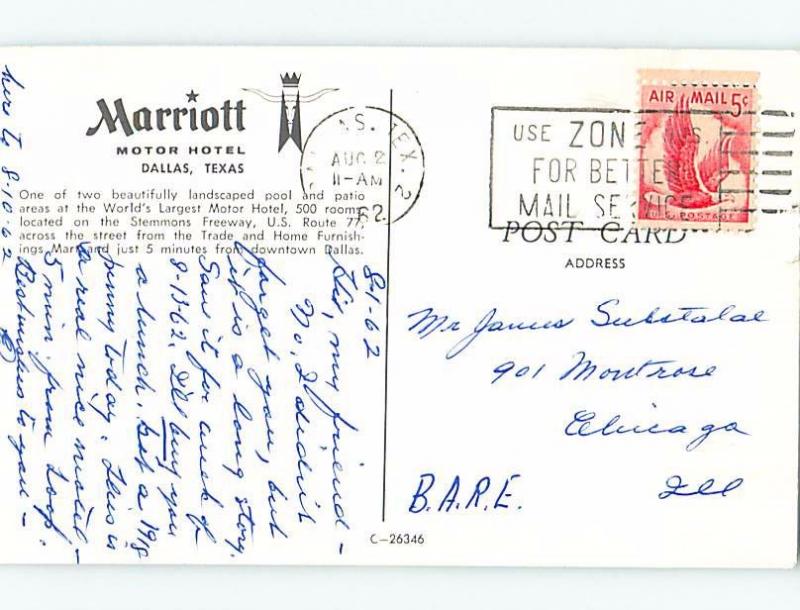 Marriott
MOTOR HOTEL
DALLAS, TEXAS
One of two beautifully landscaped pool and patio
areas at the World's Largest Motor Hotel, 500 rooms
located on the Stemmons Freeway, U.S. Route 77,
across the street from the Trade and Home Furnish-
ings Mart and just 5 minutes from downtown Dallas.
AUG 2
11-AM
62
TEX. 2
USE ZONE
FOR BETTER
MAIL SERVICE
AIR MAIL 5¢
U.S. POSTAGE
POST CARD
ADDRESS
8-1-62
my friend -
No, I didn't
forget you, but
it is a long story.
Saw it for week of
8-13-62. I'll buy you
a lunch. Got a 1918
penny today. This is
a real nice motel -
5 min. from Loop.
Best wishes to you -
here to 8-10-62
Mr James Substalae
901 Montrose
Chicago
Ill
B.A.R.E.
C-26346